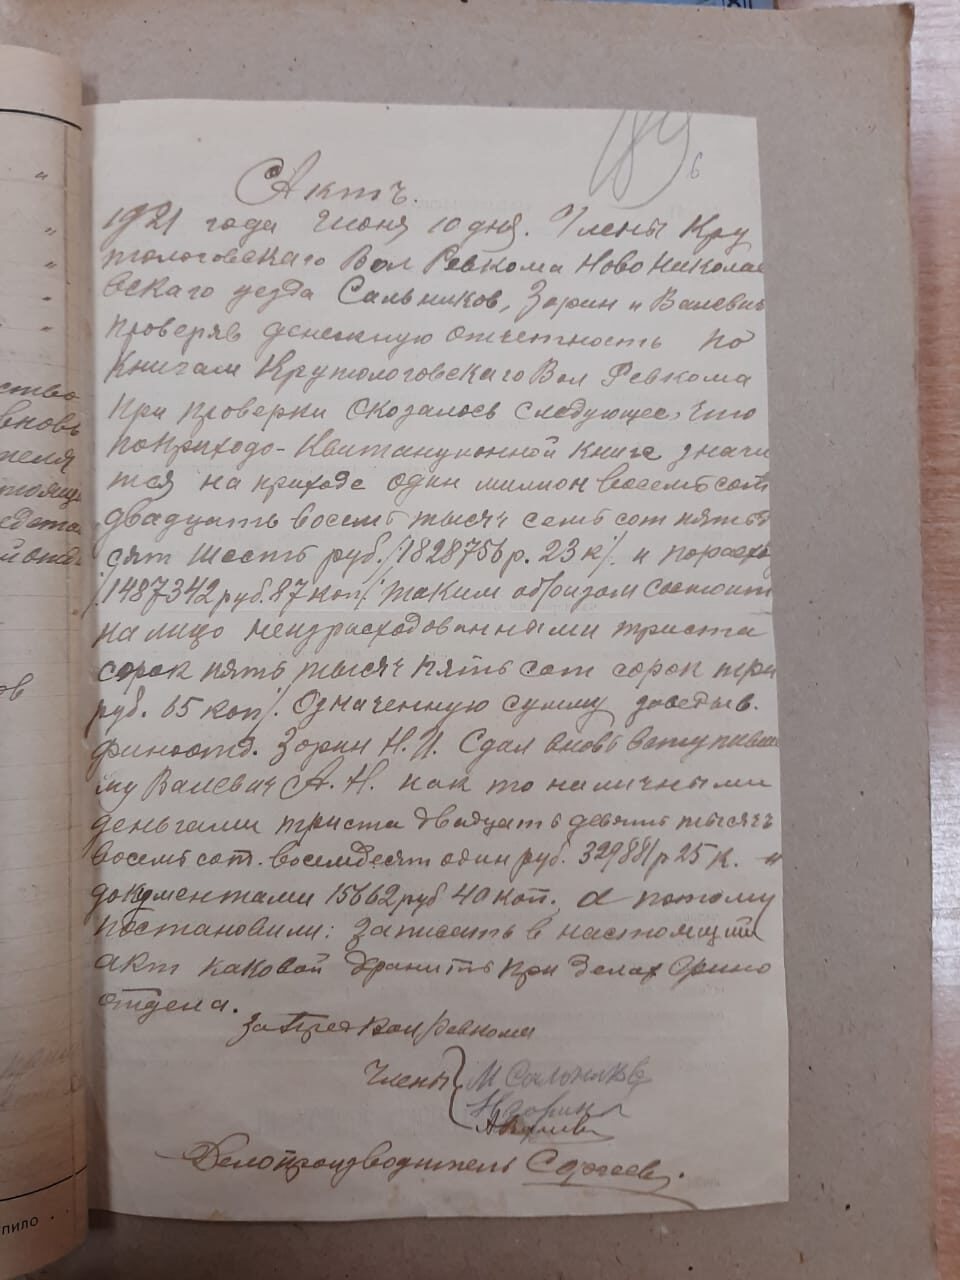 189
6
Актъ.
1921 года Июня 10 дня. Члены Кру
тологовскаго Вол Ревкома Ново Николае
вскаго уезда Сальников, Зорин и Валевич
проверяв денежную отчетность по
книгам Крутологовскаго Вол Ревкома
При проверки оказалось следующее, что
по приходо-квитанционной книге значи
тся на приходе один милион восемьсот
двадцать восемь тысяч семьсот пятьде
сят шесть руб. /1828756 р. 23 к/. и по расхо
/1487342 руб. 87 коп/ таким образом состоит
на лицо неизрасходованными триста
сорок пять тысяч пять сот сорок три
руб. 65 коп/. Означенную сумму
финотд. Зорин Н. И. Сдал вновь вступивше
му Валевич А. Н. как то наличными
деньгами триста двадцать девять тысячъ
восемь сот. восемдесят один руб. 329881 р 25 к. и
документами 15662 руб 40 коп., а потому
постановили: записать в настоящий
акт каковой хранить при делах Фино
отдела.
За Пред Вол Ревкома
Члены М Сальников
Н Зорин
А Валевич
Делопроизводитель Сергеев.
ство
вновь
теля
пило